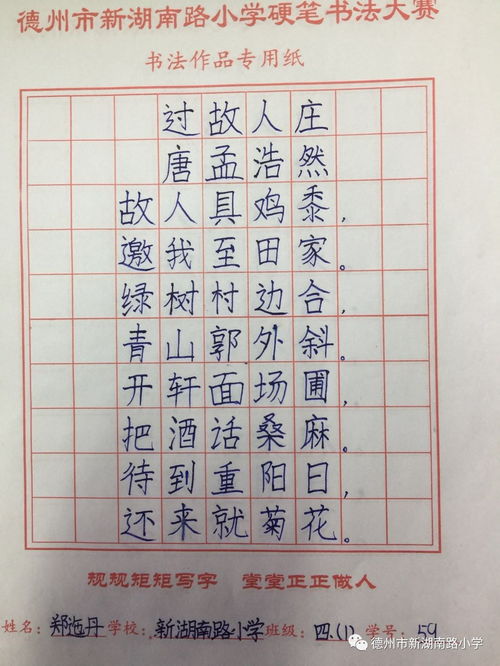 德州市新湖南路小学硬笔书法大赛
书法作品专用纸
过故人庄
唐孟浩然
故人具鸡黍,
邀我至田家。
绿树村边合,
青山郭外斜。
开轩面场圃,
把酒话桑麻。
待到重阳日,
还来就菊花。
规规矩矩写字 堂堂正正做人
姓名:郑迤丹 学校:新湖南路小学 班级:四.(1) 学号:59
德州市新湖南路小学